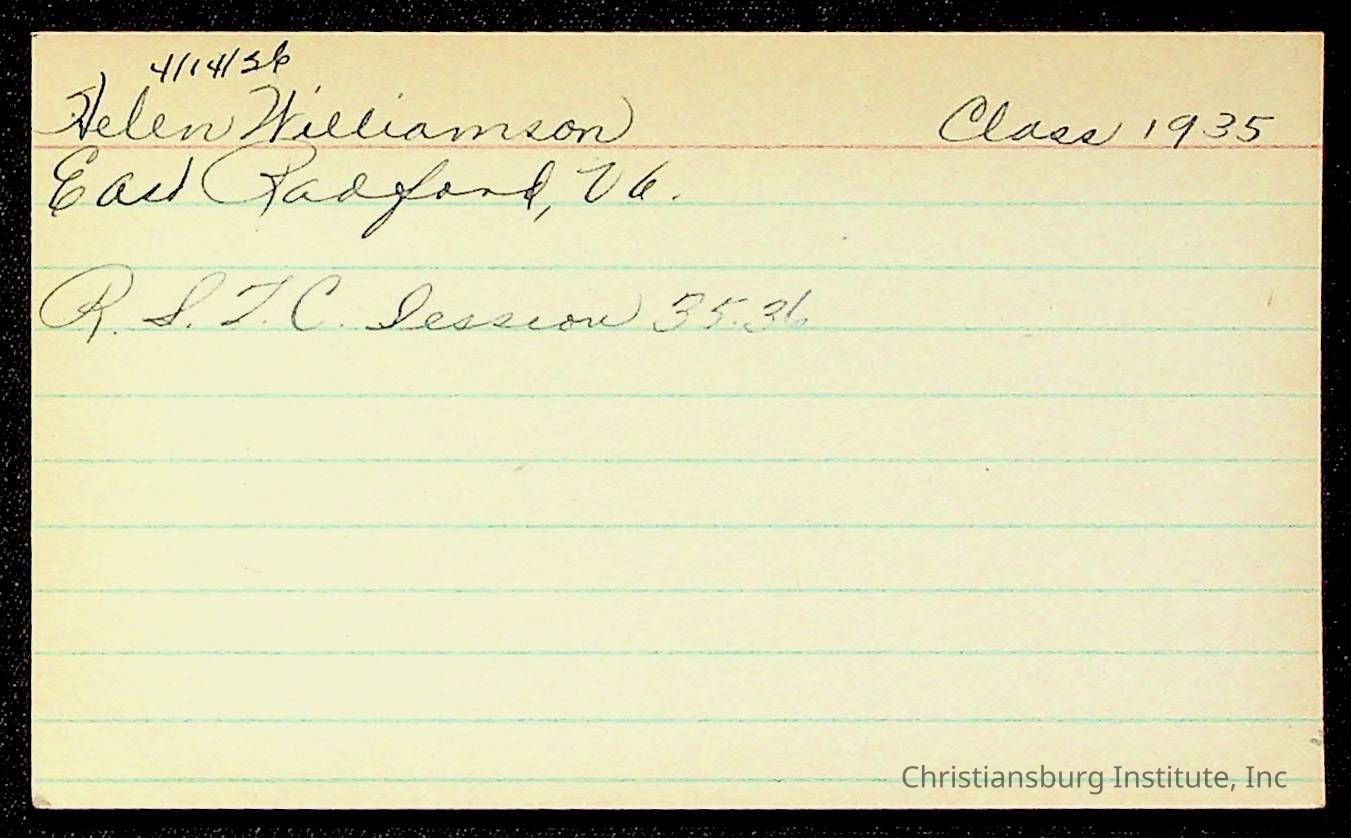 4/14/36
Helen Williamson Class 1935
East Radford, Va.
R. S. T. C. Session 35-36
Christiansburg Institute, Inc